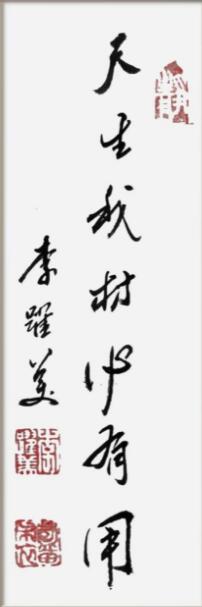 天生我材必有用
李躍美